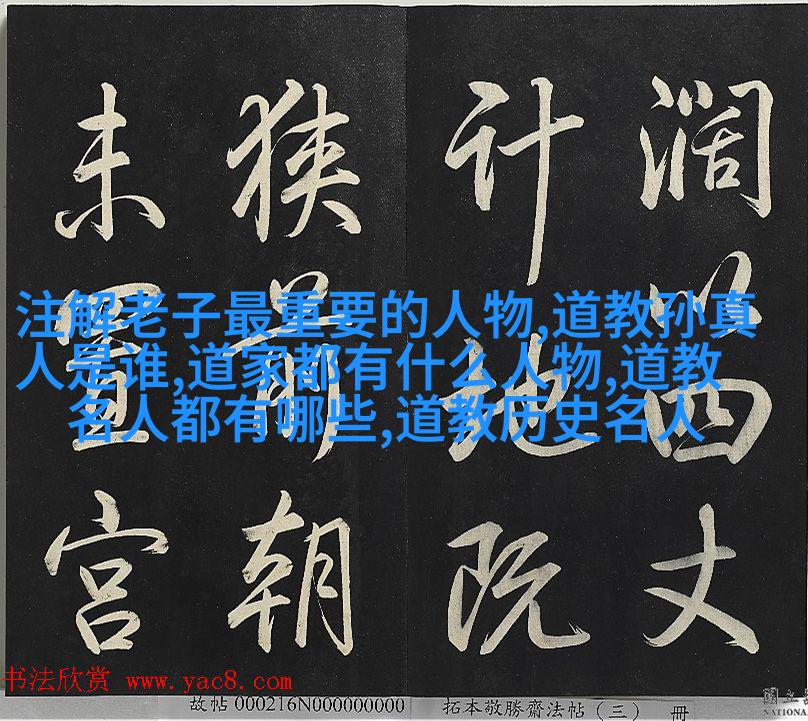 濶以四丈
計地既
狭前朝
未置宫
注解老子最重要的人物,道教孙真
人是谁,道家都有什么人物,道教
名人都有哪些,道教历史名人
书法欣赏 www.yac8.com
故帖 000216N000000000 拓本敬勝齋法帖（三） 冊
國立
NATIONA